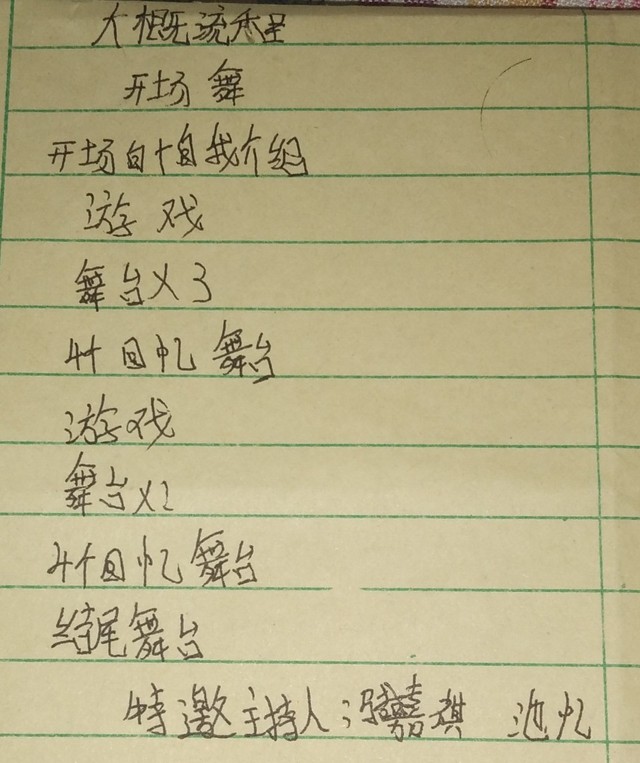 大概流程
开场舞
开场白+自我介绍
游戏
舞台×3
4个回忆舞台
游戏
舞台×2
4个回忆舞台
结尾舞台
特邀主持人:马嘉祺 池忆